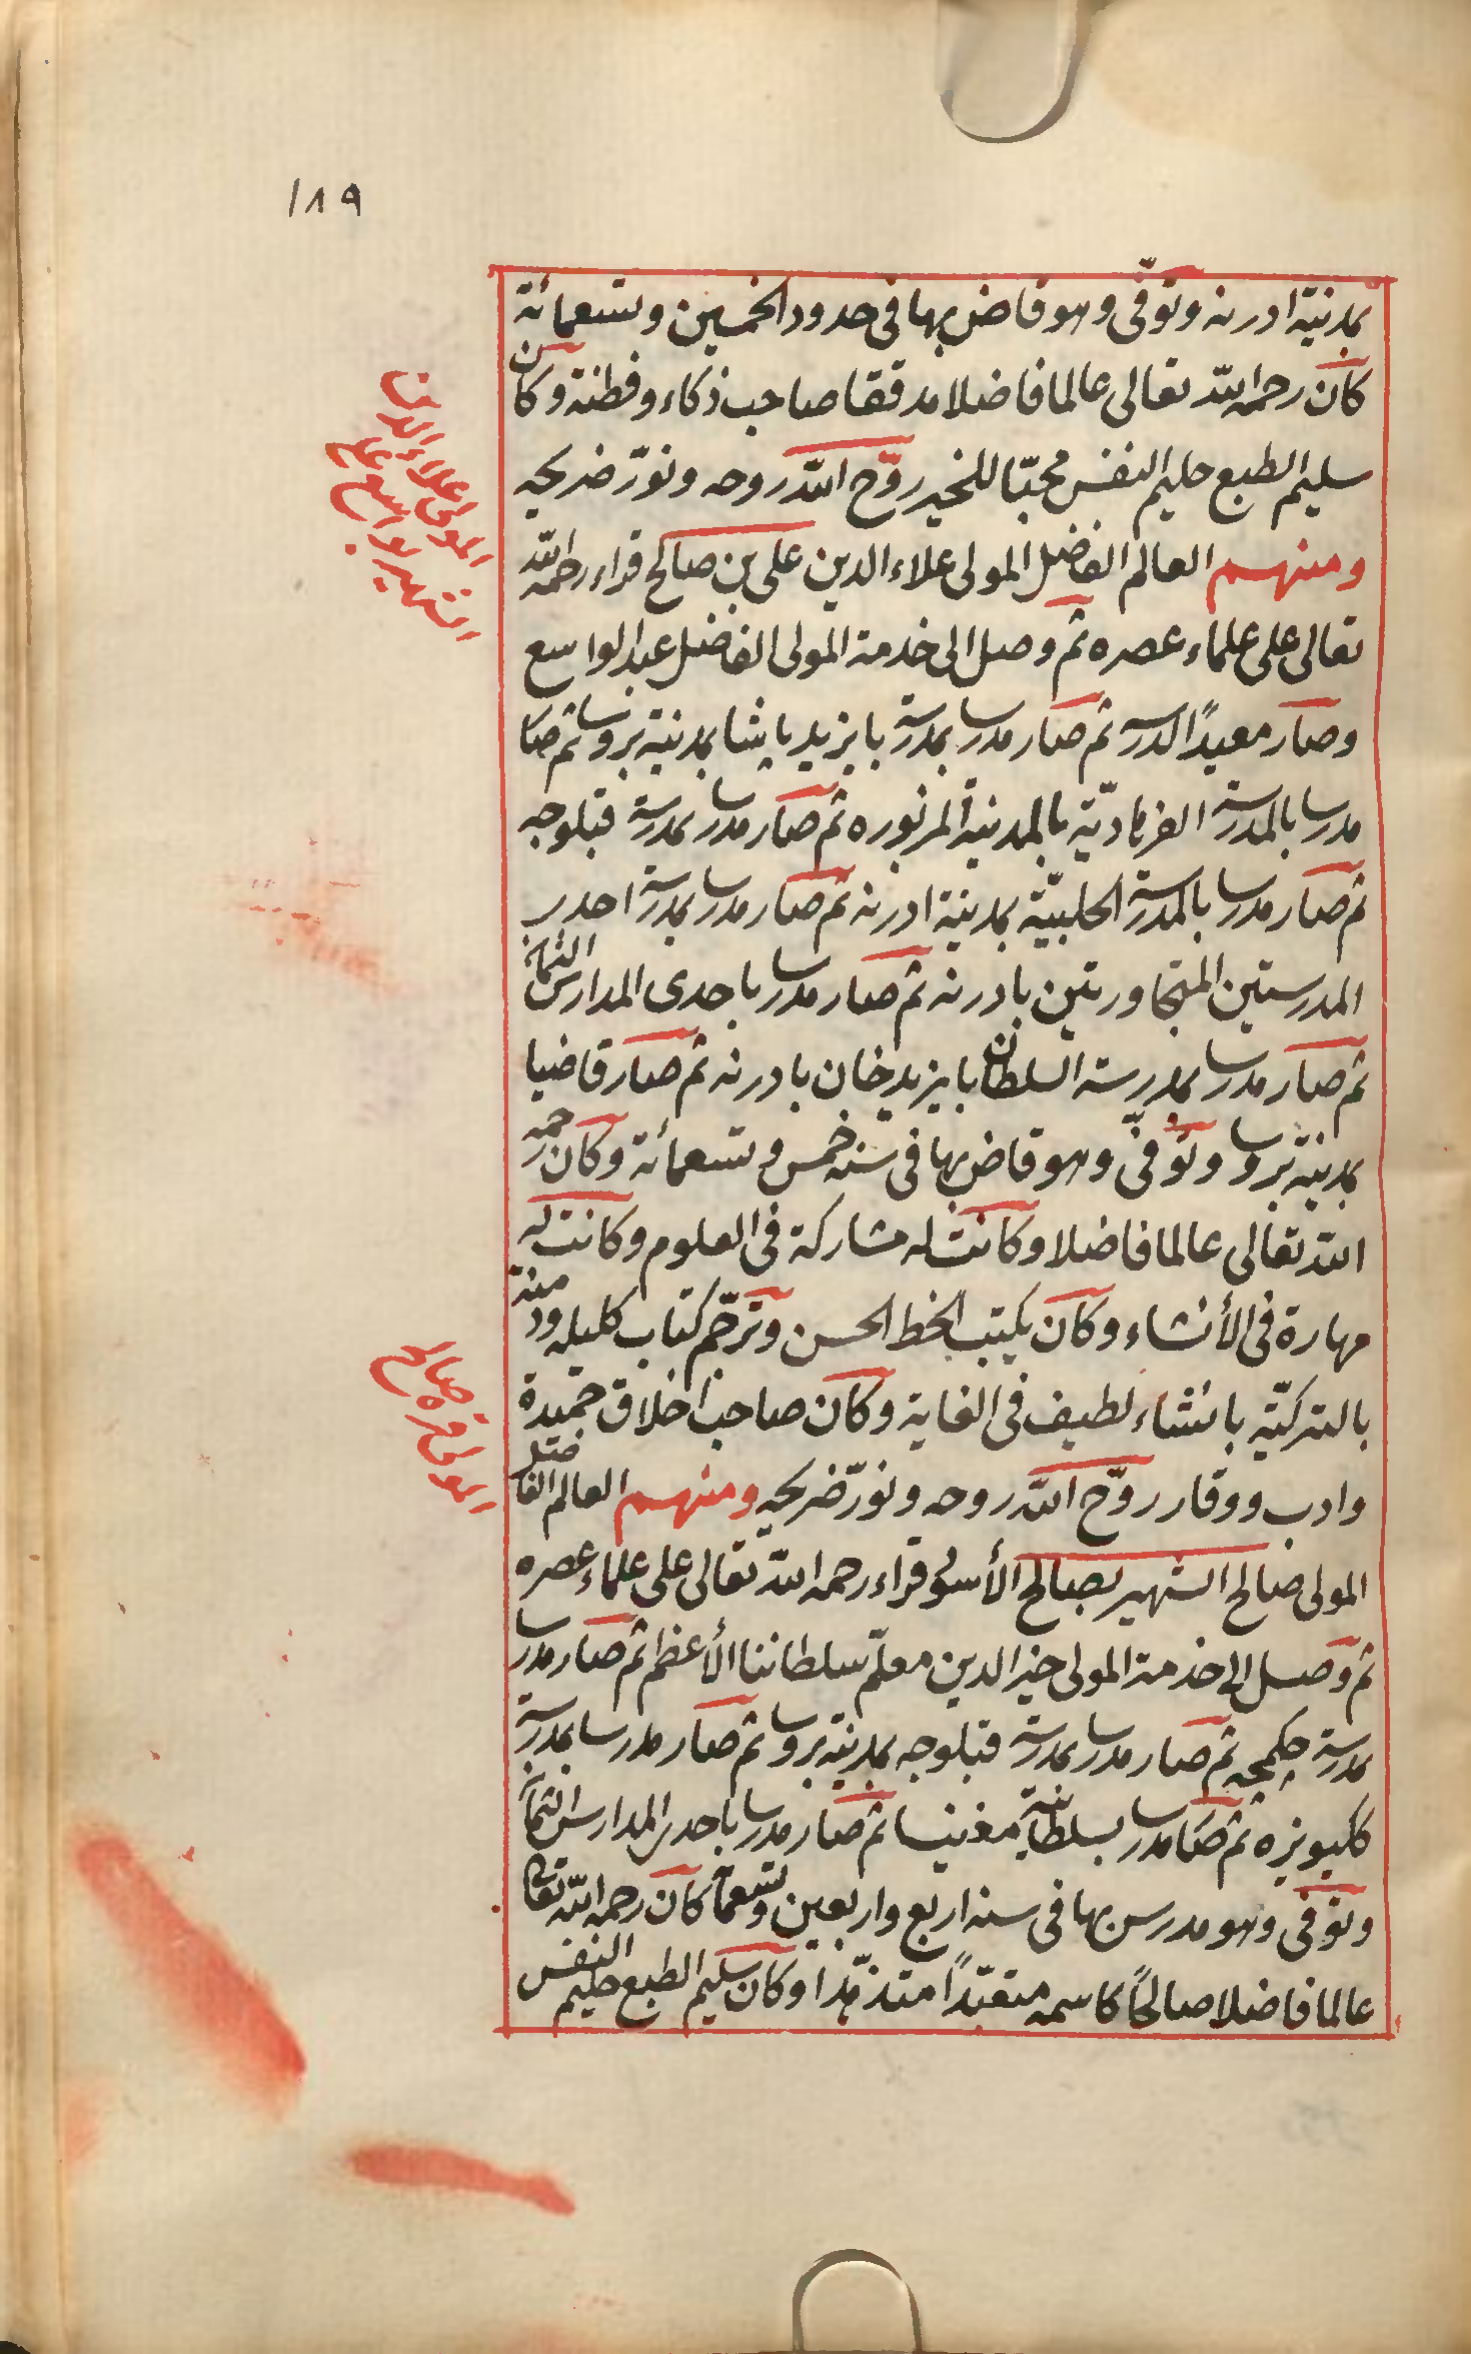 ١٨٩
بمدينة ادرنه وتوفّى وهو قاض بها فى حدود الخمسين وتسعمائة
كان رحمه الله تعالى عالما فاضلا مدققا صاحب ذكاء وفطنة وكان
سليم الطبع حليم النفس محبّا للخير روّح الله روحه ونوّر ضريحه
ومنهم العالم الفاضل المولى علاء الدين على بن صالح قراء رحمه الله
تعالى على علماء عصره ثم وصل الى خدمة المولى الفاضل عبد الواسع
وصار معيدًا لدرسه ثم صار مدرسا بمدرسة بايزيد پاشا بمدينة بروسا ثم صار
مدرسا بالمدرسة الفرهاديّة بالمدينة المزبوره ثم صار مدرسا بمدرسة قبلوجه
ثم صار مدرسا بالمدرسة الحلبيّة بمدينة ادرنه ثم صار مدرسا بمدرسة احدى
المدرستين المتجاورتين بادرنه ثم صار مدرسا باحدى المدارس الثمان
ثم صار مدرسا بمدرسة السلطان بايزيد خان بادرنه ثم صار قاضيا
بمدينة بروسا وتوفّى وهو قاض بها فى سنه خمس وتسعمائة وكان رحمه
الله تعالى عالما فاضلا وكانت له مشاركة فى العلوم وكانت له
مهارة فى الأنشاء وكان يكتب الخط الحسن وترجّم كتاب كليله ودمنه
بالتركيّة بانشاء لطيف فى الغاية وكان صاحب اخلاق حميدة
وادب ووقار روّح الله روحه ونوّر ضريحه ومنهم العالم الفاضل
المولى صالح الشهير بصالح الأسود قراء رحمه الله تعالى على علماء عصره
ثم وصل الى خدمة المولى خير الدين معلّم سلطاننا الأعظم ثم صار مدرسا
بمدرسة چكمجه ثم صار مدرسا بمدرسة قبلوجه بمدينة بروسا ثم صار مدرسا بمدرسة
كليويزه ثم صار مدرسا بسلطانية مغنيسا ثم صار مدرسا باحدى المدارس الثمان
وتوفى وهو مدرس بها فى سنه اربع واربعين وتسعمائة كان رحمه الله تعالى
عالما فاضلا صالحًا كاسمه متعبّدًا متزهّدا وكان سليم الطبع حليم النفس
المولى علاء الدين على
الشهير بواسع عليم
المولى قره صالح